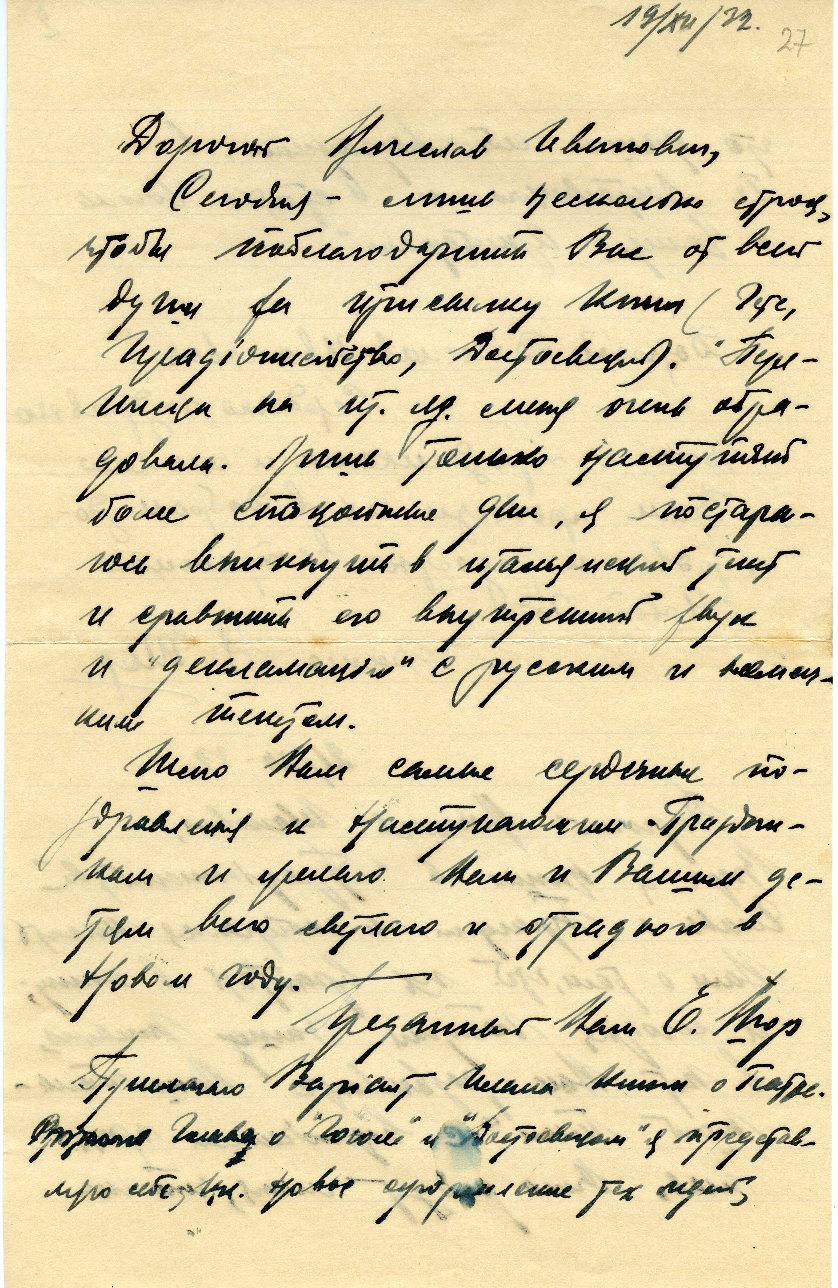 19/XII/32.
27
Дорогой Вячеслав Иванович,
Сегодня – лишь несколько строк,
чтобы поблагодарить Вас от всей
души за присылку книг (Гете,
Прадіонисійство, Достоевскій). "Пере-
писка на ит. яз. меня очень обра-
довала. Лишь только наступят
более спокойные дни, я постара-
юсь вникнуть в итальянский текст
и сравнить его внутренний звук
и "декламацію" с русским и немец-
ким текстом.
Шлю Вам самые сердечные по-
здравленія к наступающим Праздни-
кам и желаю Вам и Вашим де-
тям всего светлаго и отраднаго в
Новом году.
Преданный Вам Е. Шор
Прилагаю Варіант плана книги о театре.
главы о "Гоголе" и "Достоевском" я представ-
ляю себе, как новое оформление тех идей,